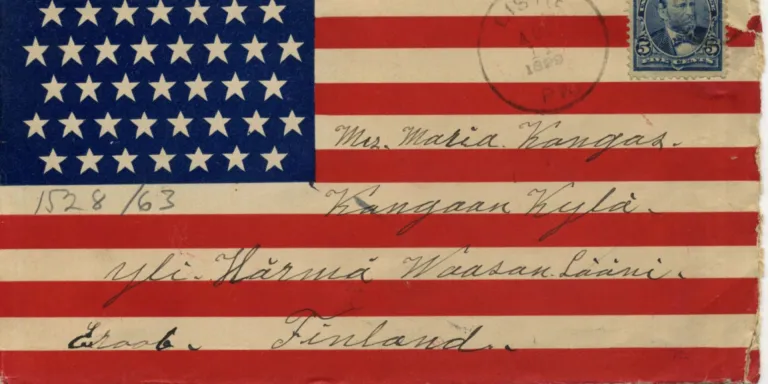 1899
PA.
5 5
Mrs. Maria Kangas.
Kangaan Kylä.
1528/63
yli-Härmä Waasan Lääni.
Finland.